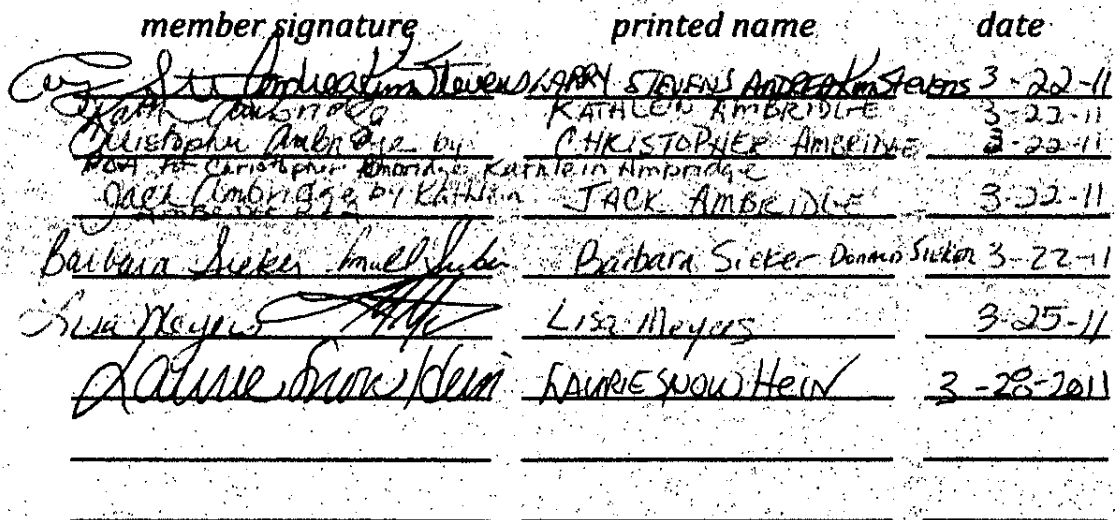 member signature printed name date
Andrea Kim Stevens LARRY STEVENS ANDREA Kim Stevens 3-22-11
Kath Ambridge KATHLEIN AMBRIDGE 3-22-11
Christopher Ambridge by CHRISTOPHER AMBRIDGE 3-22-11
POA for Christopher Ambridge Kathlein Ambridge
Jack Ambridge by Kathlein JACK AMBRIDGE 3-22-11
Barbara Sieker Barbara Sieker Donald Sieker 3-22-11
Lisa Meyers Lisa Meyers 3-25-11
Laurie Snow Hein LAURIE SNOW HEIN 3-28-2011